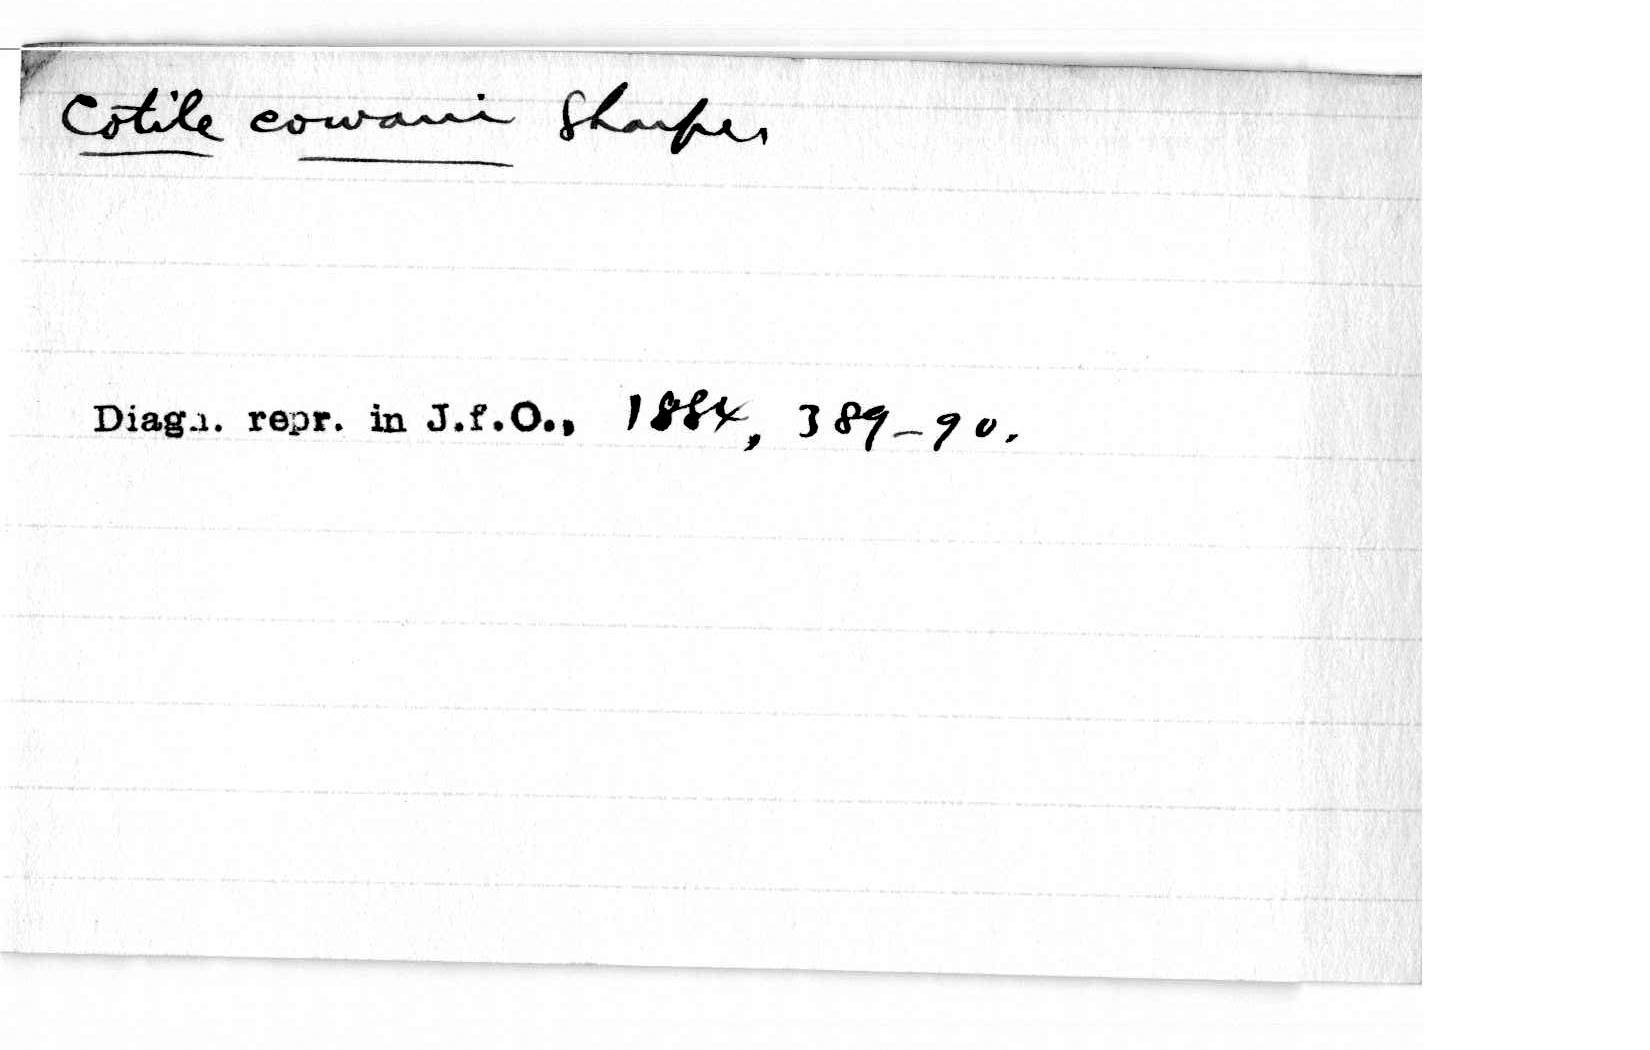 Cotile cowani Sharpe,
Diagn. repr. in J.f.O., 1884, 389-90.